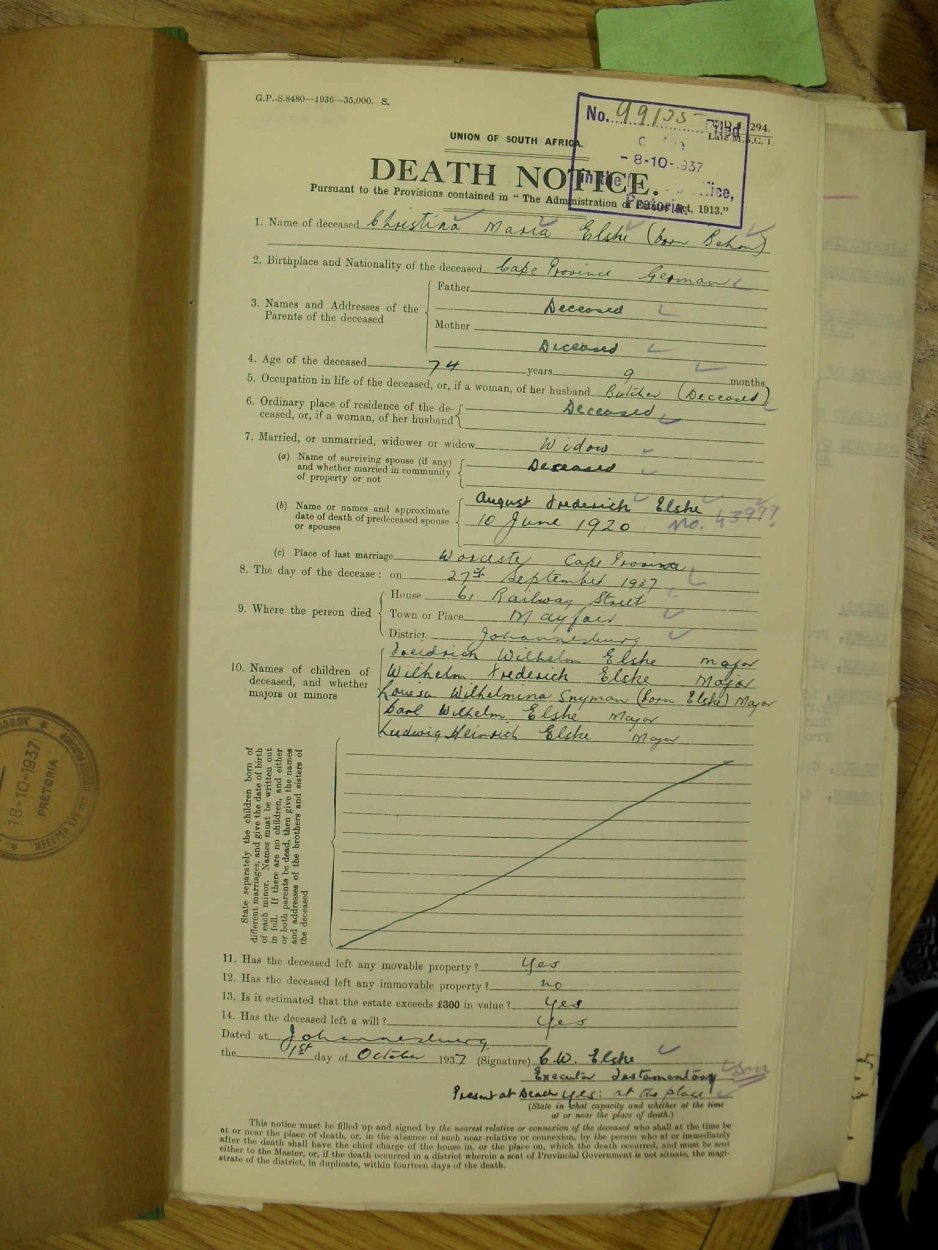 G.P.-S.8480—1936—35,000. S.
No. 99135
Filed
294.
UNION OF SOUTH AFRICA.
Late M.S.C. 1.
- 8-10-1937
DEATH NOTICE.
in the
Pretoria
Pursuant to the Provisions contained in "The Administration of Estates Act, 1913."
1. Name of deceased Christina Maria Elske (born Behon)
2. Birthplace and Nationality of the deceased Cape Province German
3. Names and Addresses of the Parents of the deceased
Father
Deceased
Mother
Deceased
4. Age of the deceased 74 years 9 months
5. Occupation in life of the deceased, or, if a woman, of her husband Butcher (Deceased)
6. Ordinary place of residence of the de-
ceased, or, if a woman, of her husband
Deceased
7. Married, or unmarried, widower or widow Widow
(a) Name of surviving spouse (if any)
and whether married in community
of property or not
Deceased
(b) Name or names and approximate
date of death of predeceased spouse
or spouses
August Frederich Elske
10 June 1920 No. 43999
(c) Place of last marriage Worcester Cape Province
8. The day of the decease: on 27th September 1937
9. Where the person died
House 61 Railway Street
Town or Place Mayfair
District Johannesburg
10. Names of children of
deceased, and whether
majors or minors
Friedrich Wilhelm Elske Major
Wilhelm Frederick Elske Major
Louisa Wilhelmina Snyman (born Elske) Major
Carl Wilhelm Elske Major
Ludwig Heinrich Elske Major
State separately the children born of
different marriages, and give the date of birth
of each minor. Names must be written out
in full. If there are no children, and either
or both parents be dead, then give the names
and addresses of the brothers and sisters of
the deceased
18-10-1937
PRETORIA
11. Has the deceased left any movable property? Yes
12. Has the deceased left any immovable property? no
13. Is it estimated that the estate exceeds £300 in value? Yes
14. Has the deceased left a will? Yes
Dated at Johannesburg
the 1st day of October 1937 (Signature) C.W. Elske
Executor Testamentary Son
Present at Death yes: at the place
(State in what capacity and whether at the time
at or near the place of death.)
This notice must be filled up and signed by the nearest relative or connexion of the deceased who shall at the time be
at or near the place of death, or, in the absence of such near relative or connexion, by the person who at or immediately
after the death shall have the chief charge of the house in, or the place on, which the death occurred, and must be sent
either to the Master, or, if the death occurred in a district wherein a seat of Provincial Government is not situate, the magi-
strate of the district, in duplicate, within fourteen days of the death.